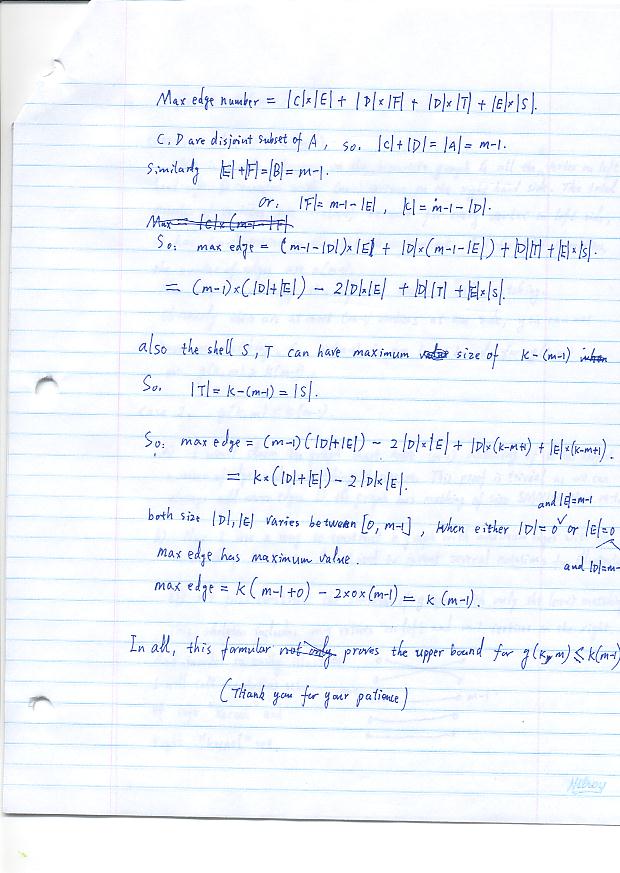 Max edge number = |C|×|E| + |D|×|F| + |D|×|T| + |E|×|S|.
C, D are disjoint subset of A, so. |C|+|D|=|A|=m-1.
Similarly |E|+|F|=|B|=m-1.
or. |F|=m-1-|E|, |C|=m-1-|D|.
Max = |C|×(m-1-|F|
So: max edge = (m-1-|D|)×|E| + |D|×(m-1-|E|) + |D||T| + |E|×|S|.
= (m-1)×(|D|+|E|) - 2|D|×|E| + |D||T| + |E|×|S|.
also the shell S, T can have maximum size of K-(m-1)
So. |T|=K-(m-1)=|S|.
So: max edge = (m-1)(|D|+|E|) - 2|D|×|E| + |D|×(K-m+1) + |E|×(K-m+1).
= K×(|D|+|E|) - 2|D|×|E|.
and |E|=m-1
both size |D|, |E| varies between [0, m-1], when either |D|=0 or |E|=0
and |D|=m-
max edge has maximum value.
max edge = K(m-1+0) - 2×0×(m-1) = K(m-1).
In all, this formular not only proves the upper bound for g(K,m) ≤ K(m-1)
(Thank you for your patience)